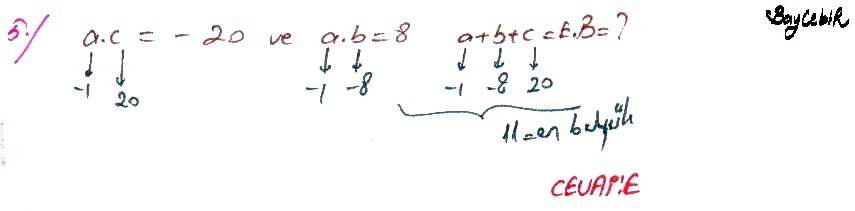 BayCebiR
5-) a.c = - 20 ve a.b = 8 a+b+c = E.B = ?
-1 20 -1 -8 -1 -8 20
11 = en büyük
CEVAP:E